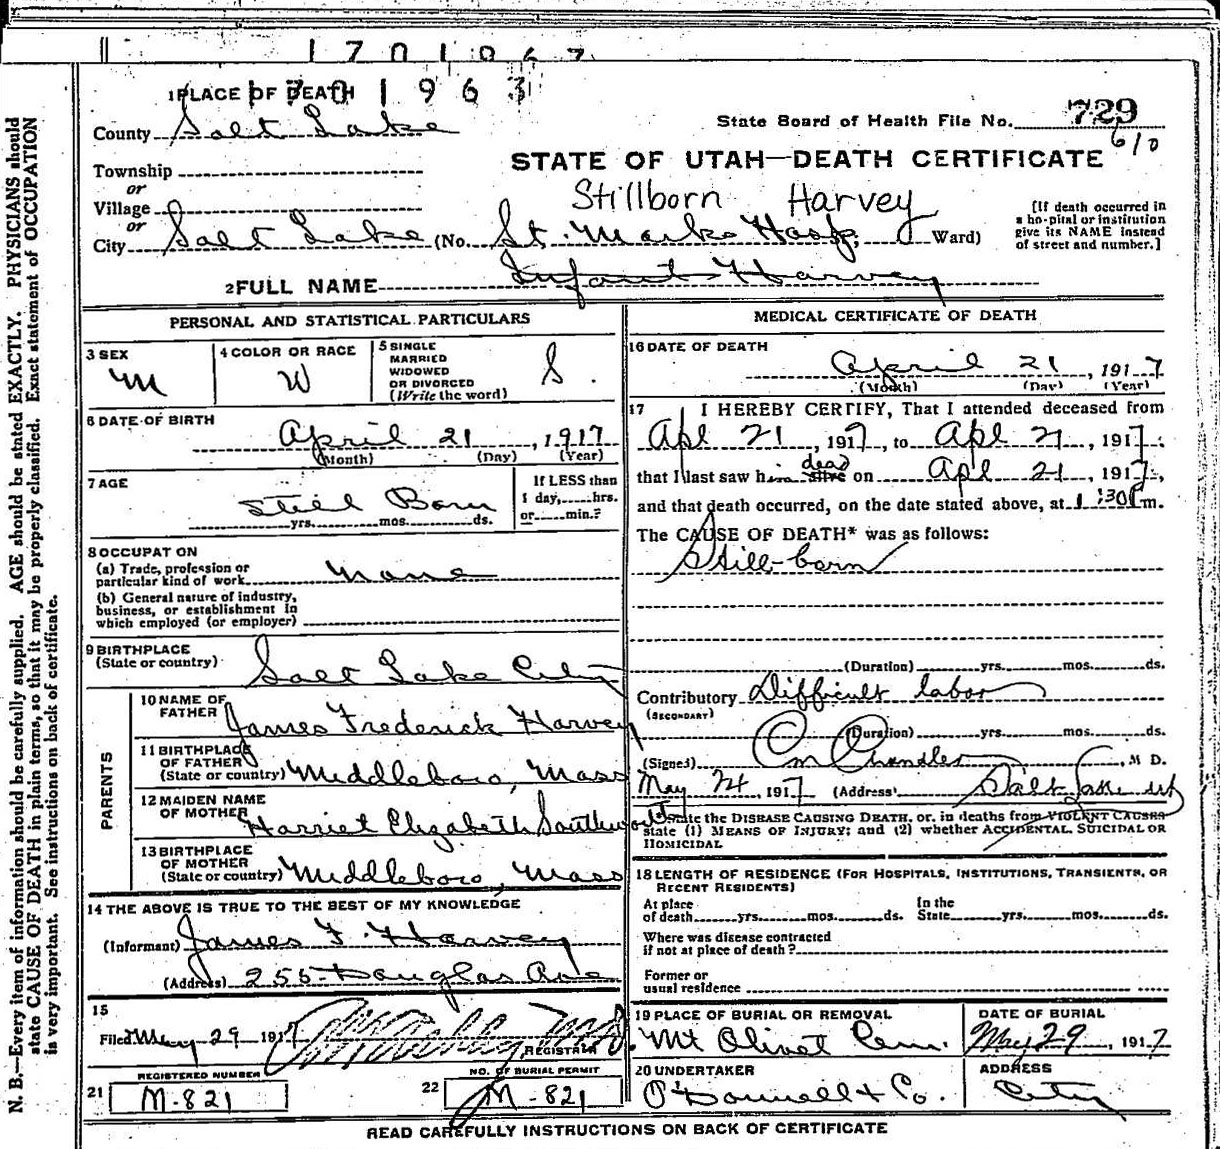 1701963
1 PLACE OF DEATH
County Salt Lake
State Board of Health File No. 729
610
Township
or
Village
or
City Salt Lake (No. St. Marks Hosp, Ward)
STATE OF UTAH—DEATH CERTIFICATE
Stillborn Harvey
[If death occurred in
a hospital or institution
give its NAME instead
of street and number.]
2 FULL NAME Infant Harvey
PERSONAL AND STATISTICAL PARTICULARS
3 SEX
M
4 COLOR OR RACE
W
5 SINGLE
MARRIED
WIDOWED
OR DIVORCED
(Write the word)
S.
6 DATE OF BIRTH
April 21, 1917
(Month) (Day) (Year)
7 AGE
Still Born
yrs. mos. ds.
If LESS than
1 day, hrs.
or min.?
8 OCCUPATON
(a) Trade, profession or
particular kind of work none
(b) General nature of industry,
business, or establishment in
which employed (or employer)
9 BIRTHPLACE
(State or country) Salt Lake City
PARENTS
10 NAME OF
FATHER James Frederick Harvey
11 BIRTHPLACE
OF FATHER
(State or country) Middleboro, Mass
12 MAIDEN NAME
OF MOTHER Harriet Elizabeth Southworth
13 BIRTHPLACE
OF MOTHER
(State or country) Middleboro, Mass
14 THE ABOVE IS TRUE TO THE BEST OF MY KNOWLEDGE
(Informant) James F. Harvey
(Address) 255 Douglas Ave
15
Filed May 29 1917
REGISTRAR
REGISTERED NUMBER
21 M-821
NO. OF BURIAL PERMIT
22 M-821
MEDICAL CERTIFICATE OF DEATH
16 DATE OF DEATH
April 21, 1917
(Month) (Day) (Year)
17 I HEREBY CERTIFY, That I attended deceased from
Apl 21, 1917, to Apl 21, 1917
that I last saw him dead alive on Apl 21, 1917,
and that death occurred, on the date stated above, at 1:30 P m.
The CAUSE OF DEATH* was as follows:
Still-born
(Duration) yrs. mos. ds.
Contributory Difficult labor
(SECONDARY)
(Duration) yrs. mos. ds.
(Signed) C M Chandler, M D.
May 24, 1917 (Address) Salt Lake Ut
State the DISEASE CAUSING DEATH, or, in deaths from VIOLENT CAUSES
state (1) MEANS OF INJURY; and (2) whether ACCIDENTAL, SUICIDAL OR
HOMICIDAL
18 LENGTH OF RESIDENCE (FOR HOSPITALS, INSTITUTIONS, TRANSIENTS, OR
RECENT RESIDENTS)
At place
of death yrs. mos. ds.
In the
State yrs. mos. ds.
Where was disease contracted
if not at place of death?
Former or
usual residence
19 PLACE OF BURIAL OR REMOVAL
Mt Olivet Cem.
DATE OF BURIAL
May 29, 1917
20 UNDERTAKER
O'Donnell & Co.
ADDRESS
City
READ CAREFULLY INSTRUCTIONS ON BACK OF CERTIFICATE
N. B.—Every item of information should be carefully supplied. AGE should be stated EXACTLY. PHYSICIANS should
state CAUSE OF DEATH in plain terms, so that it may be properly classified. Exact statement of OCCUPATION
is very important. See instructions on back of certificate.